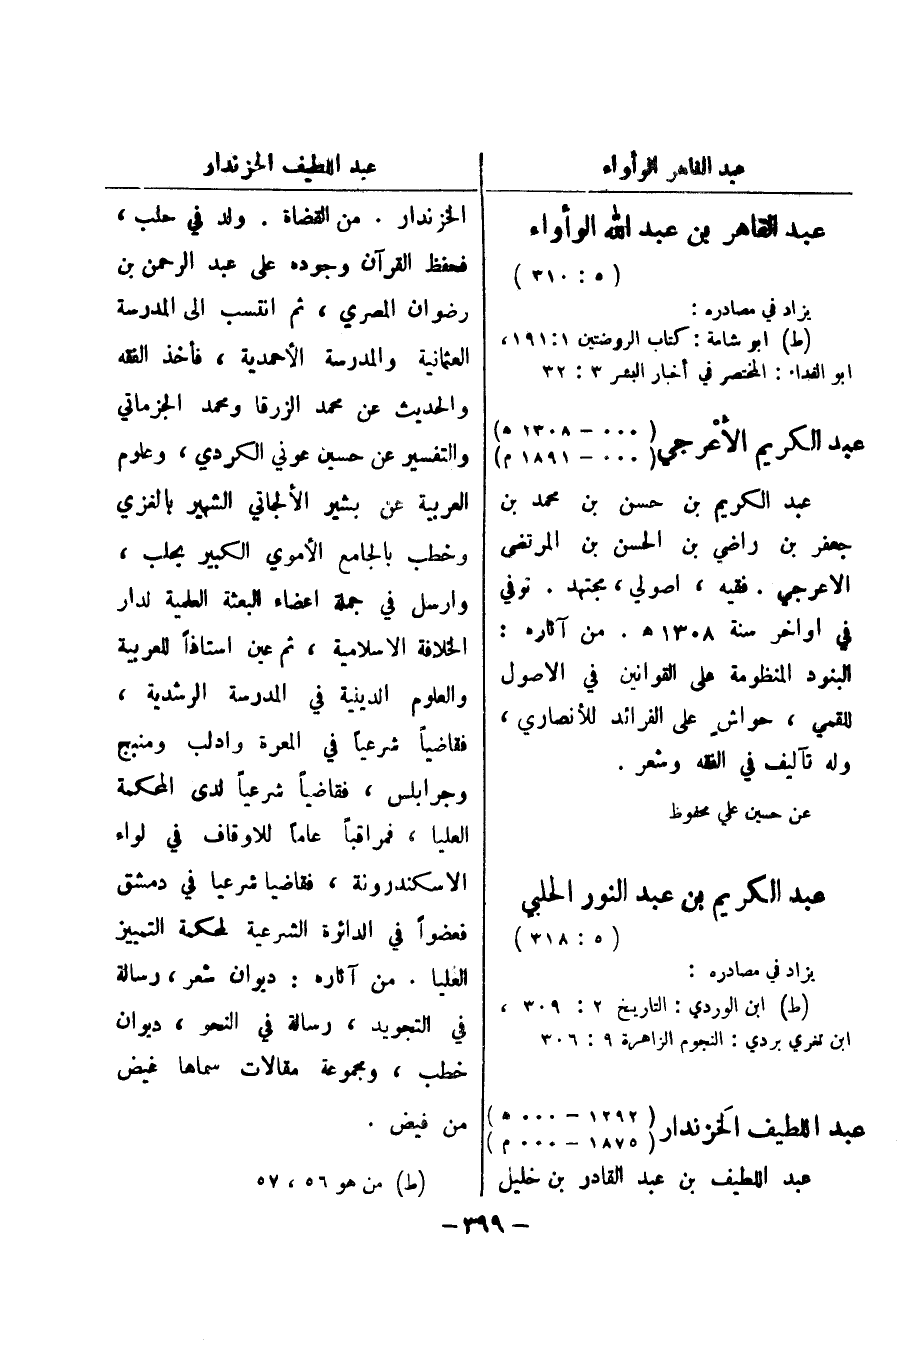 عبد القاهر الوأواء
عبد القاهر بن عبد الله الوأواء
( ٥ : ٣١٠ )
يزاد في مصادره :
(ط) ابو شامة : كتاب الروضتين ١ : ١٩١ ،
ابو الفداء : المختصر في أخبار البشر ٣ : ٣٢
عبد الكريم الأعرجي ( ٠٠٠ – ١٣٠٨ ه )
( ٠٠٠ – ١٨٩١ م )
عبد الكريم بن حسن بن محمد بن
جعفر بن راضي بن الحسن بن المرتضى
الاعرجي . فقيه ، اصولي ، مجتهد . توفي
في اواخر سنة ١٣٠٨ ه . من آثاره :
البنود المنظومة على القوانين في الاصول
للقمي ، حواشٍ على الفرائد للأنصاري ،
وله تآليف في الفقه وشعر .
عن حسين علي محفوظ
عبد الكريم بن عبد النور الحلبي
( ٥ : ٣١٨ )
يزاد في مصادره :
(ط) ابن الوردي : التاريخ ٢ : ٣٠٩ ،
ابن تغري بردي : النجوم الزاهرة ٩ : ٣٠٦
عبد اللطيف الخزندار ( ١٢٩٢ – ٠٠٠ ه )
( ١٨٧٥ – ٠٠٠ م )
عبد اللطيف بن عبد القادر بن خليل
عبد اللطيف الخزندار
الخزندار . من القضاة . ولد في حلب ،
فحفظ القرآن وجوده على عبد الرحمن بن
رضوان المصري ، ثم انتسب الى المدرسة
العثمانية والمدرسة الأحمدية ، فأخذ الفقه
والحديث عن محمد الزرقا ومحمد الجزماتي
والتفسير عن حسين عوني الكردي ، وعلوم
العربية عن بشير الألجاتي الشهير بالغزي
وخطب بالجامع الأموي الكبير بحلب ،
وارسل في جملة اعضاء البعثة العلمية لدار
الخلافة الاسلامية ، ثم عين استاذاً للعربية
والعلوم الدينية في المدرسة الرشدية ،
فقاضياً شرعياً في المعرة وادلب ومنبج
وجرابلس ، فقاضياً شرعياً لدى المحكمة
العليا ، فمراقباً عاماً للاوقاف في لواء
الاسكندرونة ، فقاضيا شرعيا في دمشق
فعضواً في الدائرة الشرعية لمحكمة التمييز
العليا . من آثاره : ديوان شعر ، رسالة
في التجويد ، رسالة في النحو ، ديوان
خطب ، ومجموعة مقالات سماها غيض
من فيض .
(ط) من هو ٥٦ ، ٥٧
– ٣٩٩ –